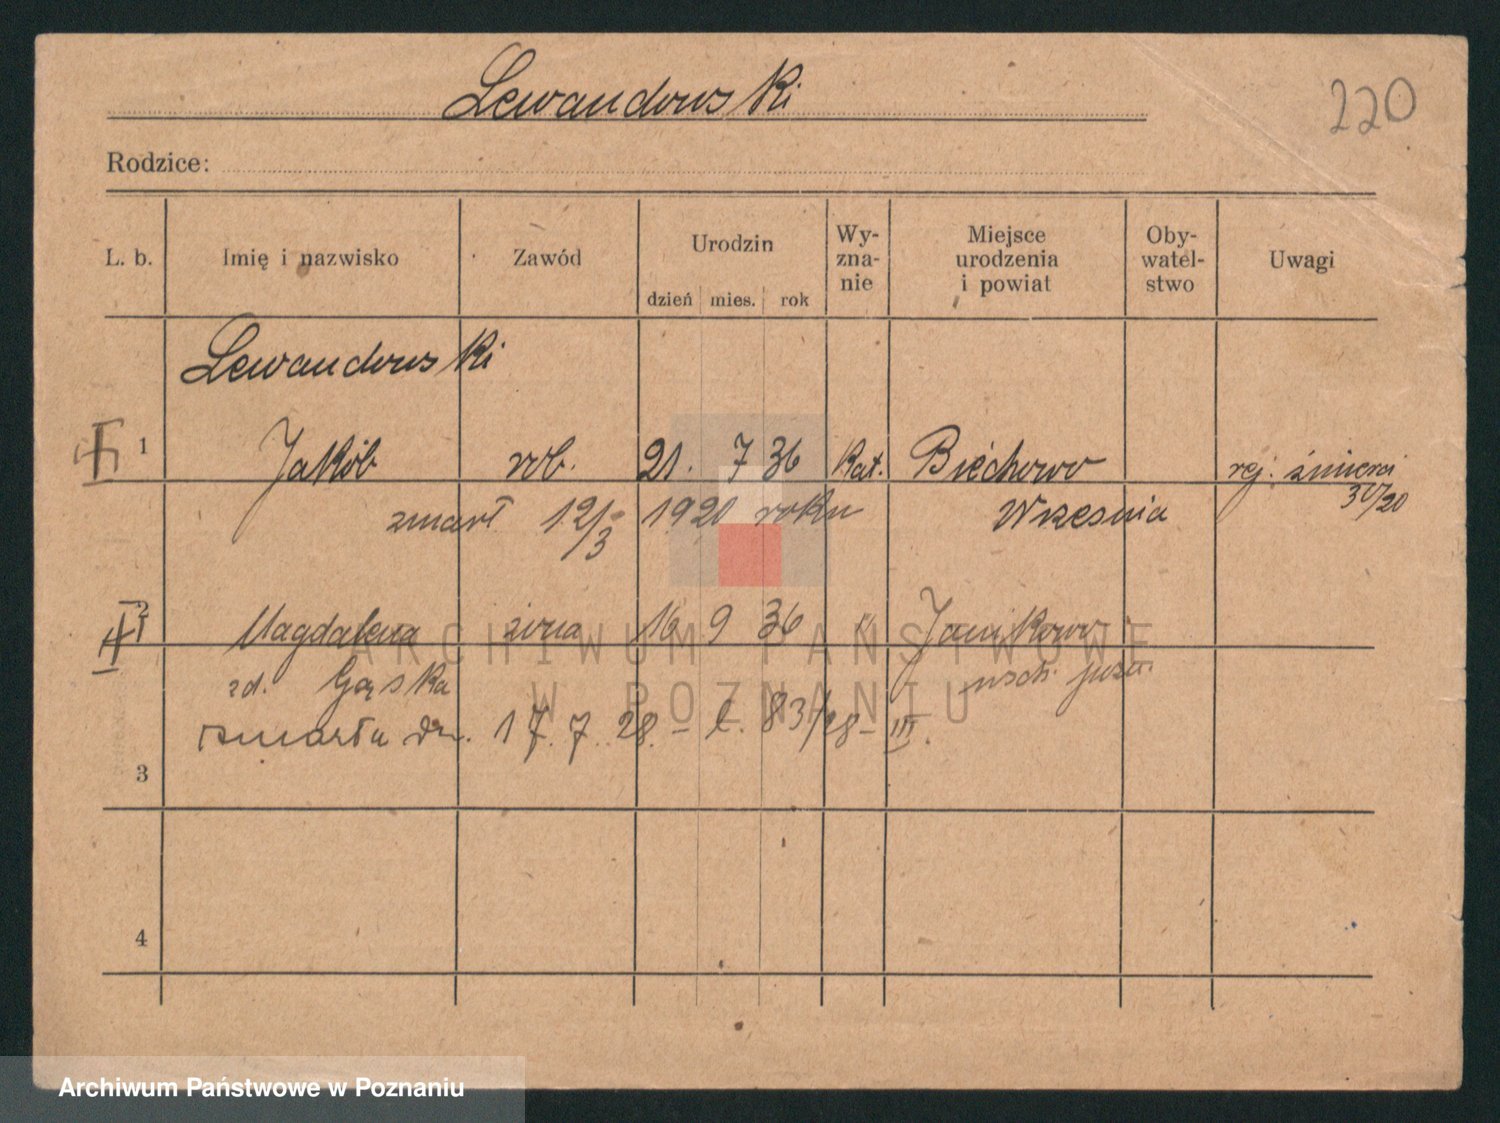 Lewandowski
220
Rodzice:
L. b. Imię i nazwisko Zawód Urodzin dzień mies. rok Wy-zna-nie Miejsce urodzenia i powiat Oby-watel-stwo Uwagi
Lewandowski
1 Jakób rob. 21. 7 36 kat. Biechowo rej. śmierci
zmarł 12/3 1920 roku Września /20
2 Magdalena żona 16 9 36 " Janikowo
zd. Gąska
zmarła dn. 17. 7. 28. - l. 83/28 - III.
3
4
ARCHIWUM PAŃSTWOWE
W POZNANIU
Archiwum Państwowe w Poznaniu